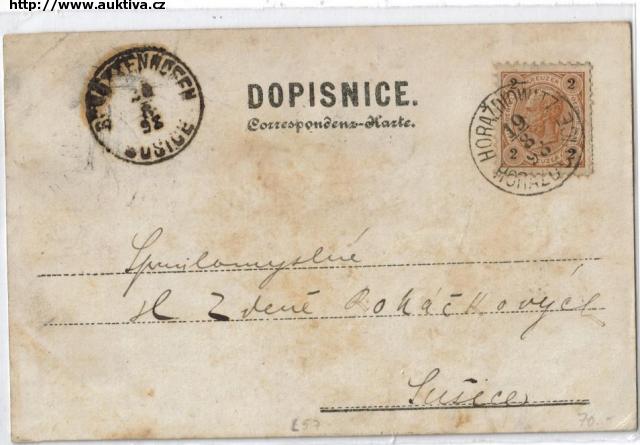 http://www.auktiva.cz
SCHÜTTENHOFEN
SUŠICE
DOPISNICE.
Correspondenz-Karte.
2 KREUZER 2
2 2
HORAŽĎOWITZ
19
8
98
HORAŽĎOVICE
Spanilomyslné
sl. Zdeně Boháčkovýc
Sušice
70.-